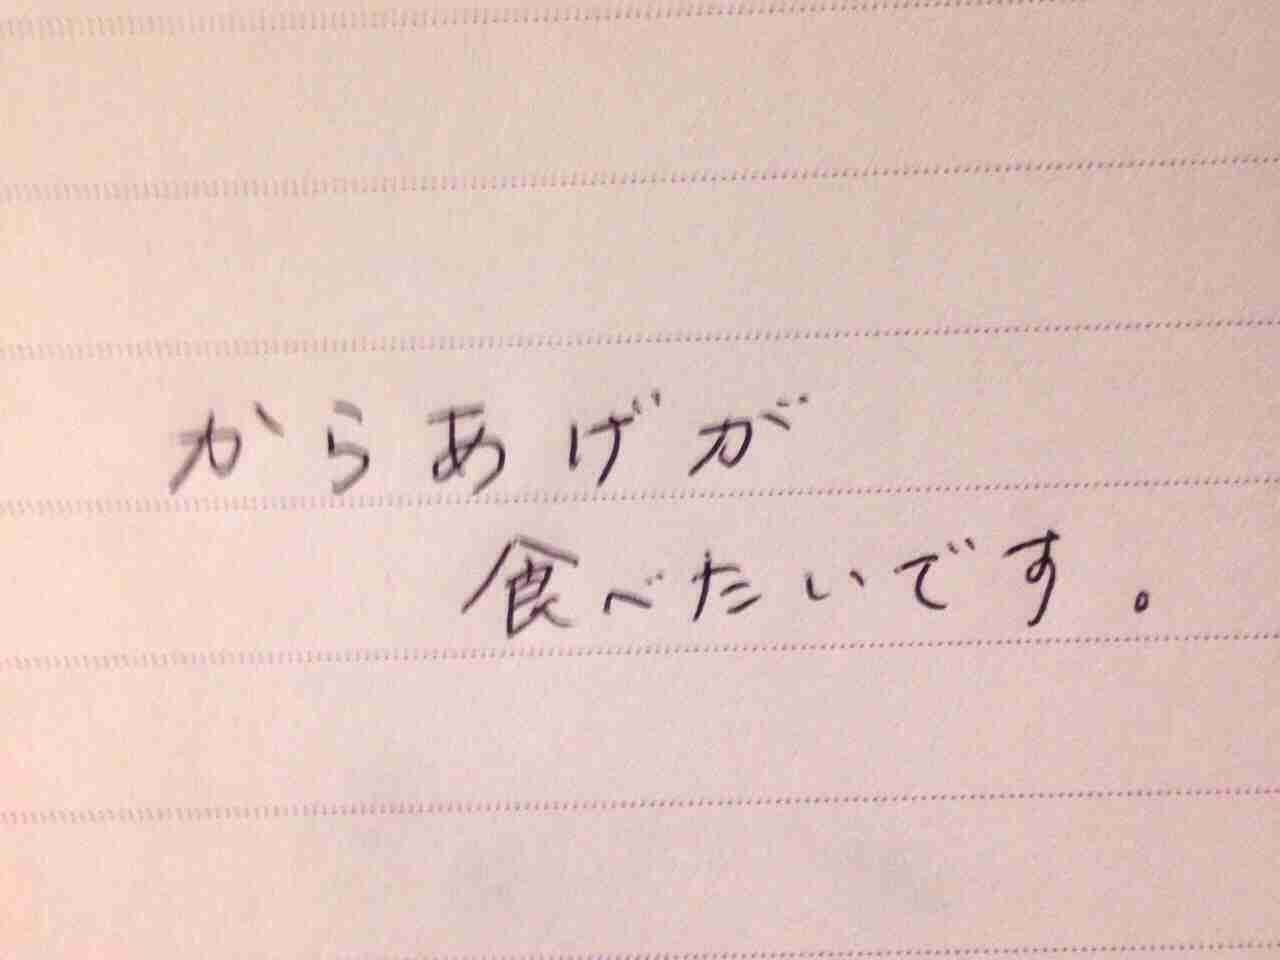 からあげが
食べたいです。